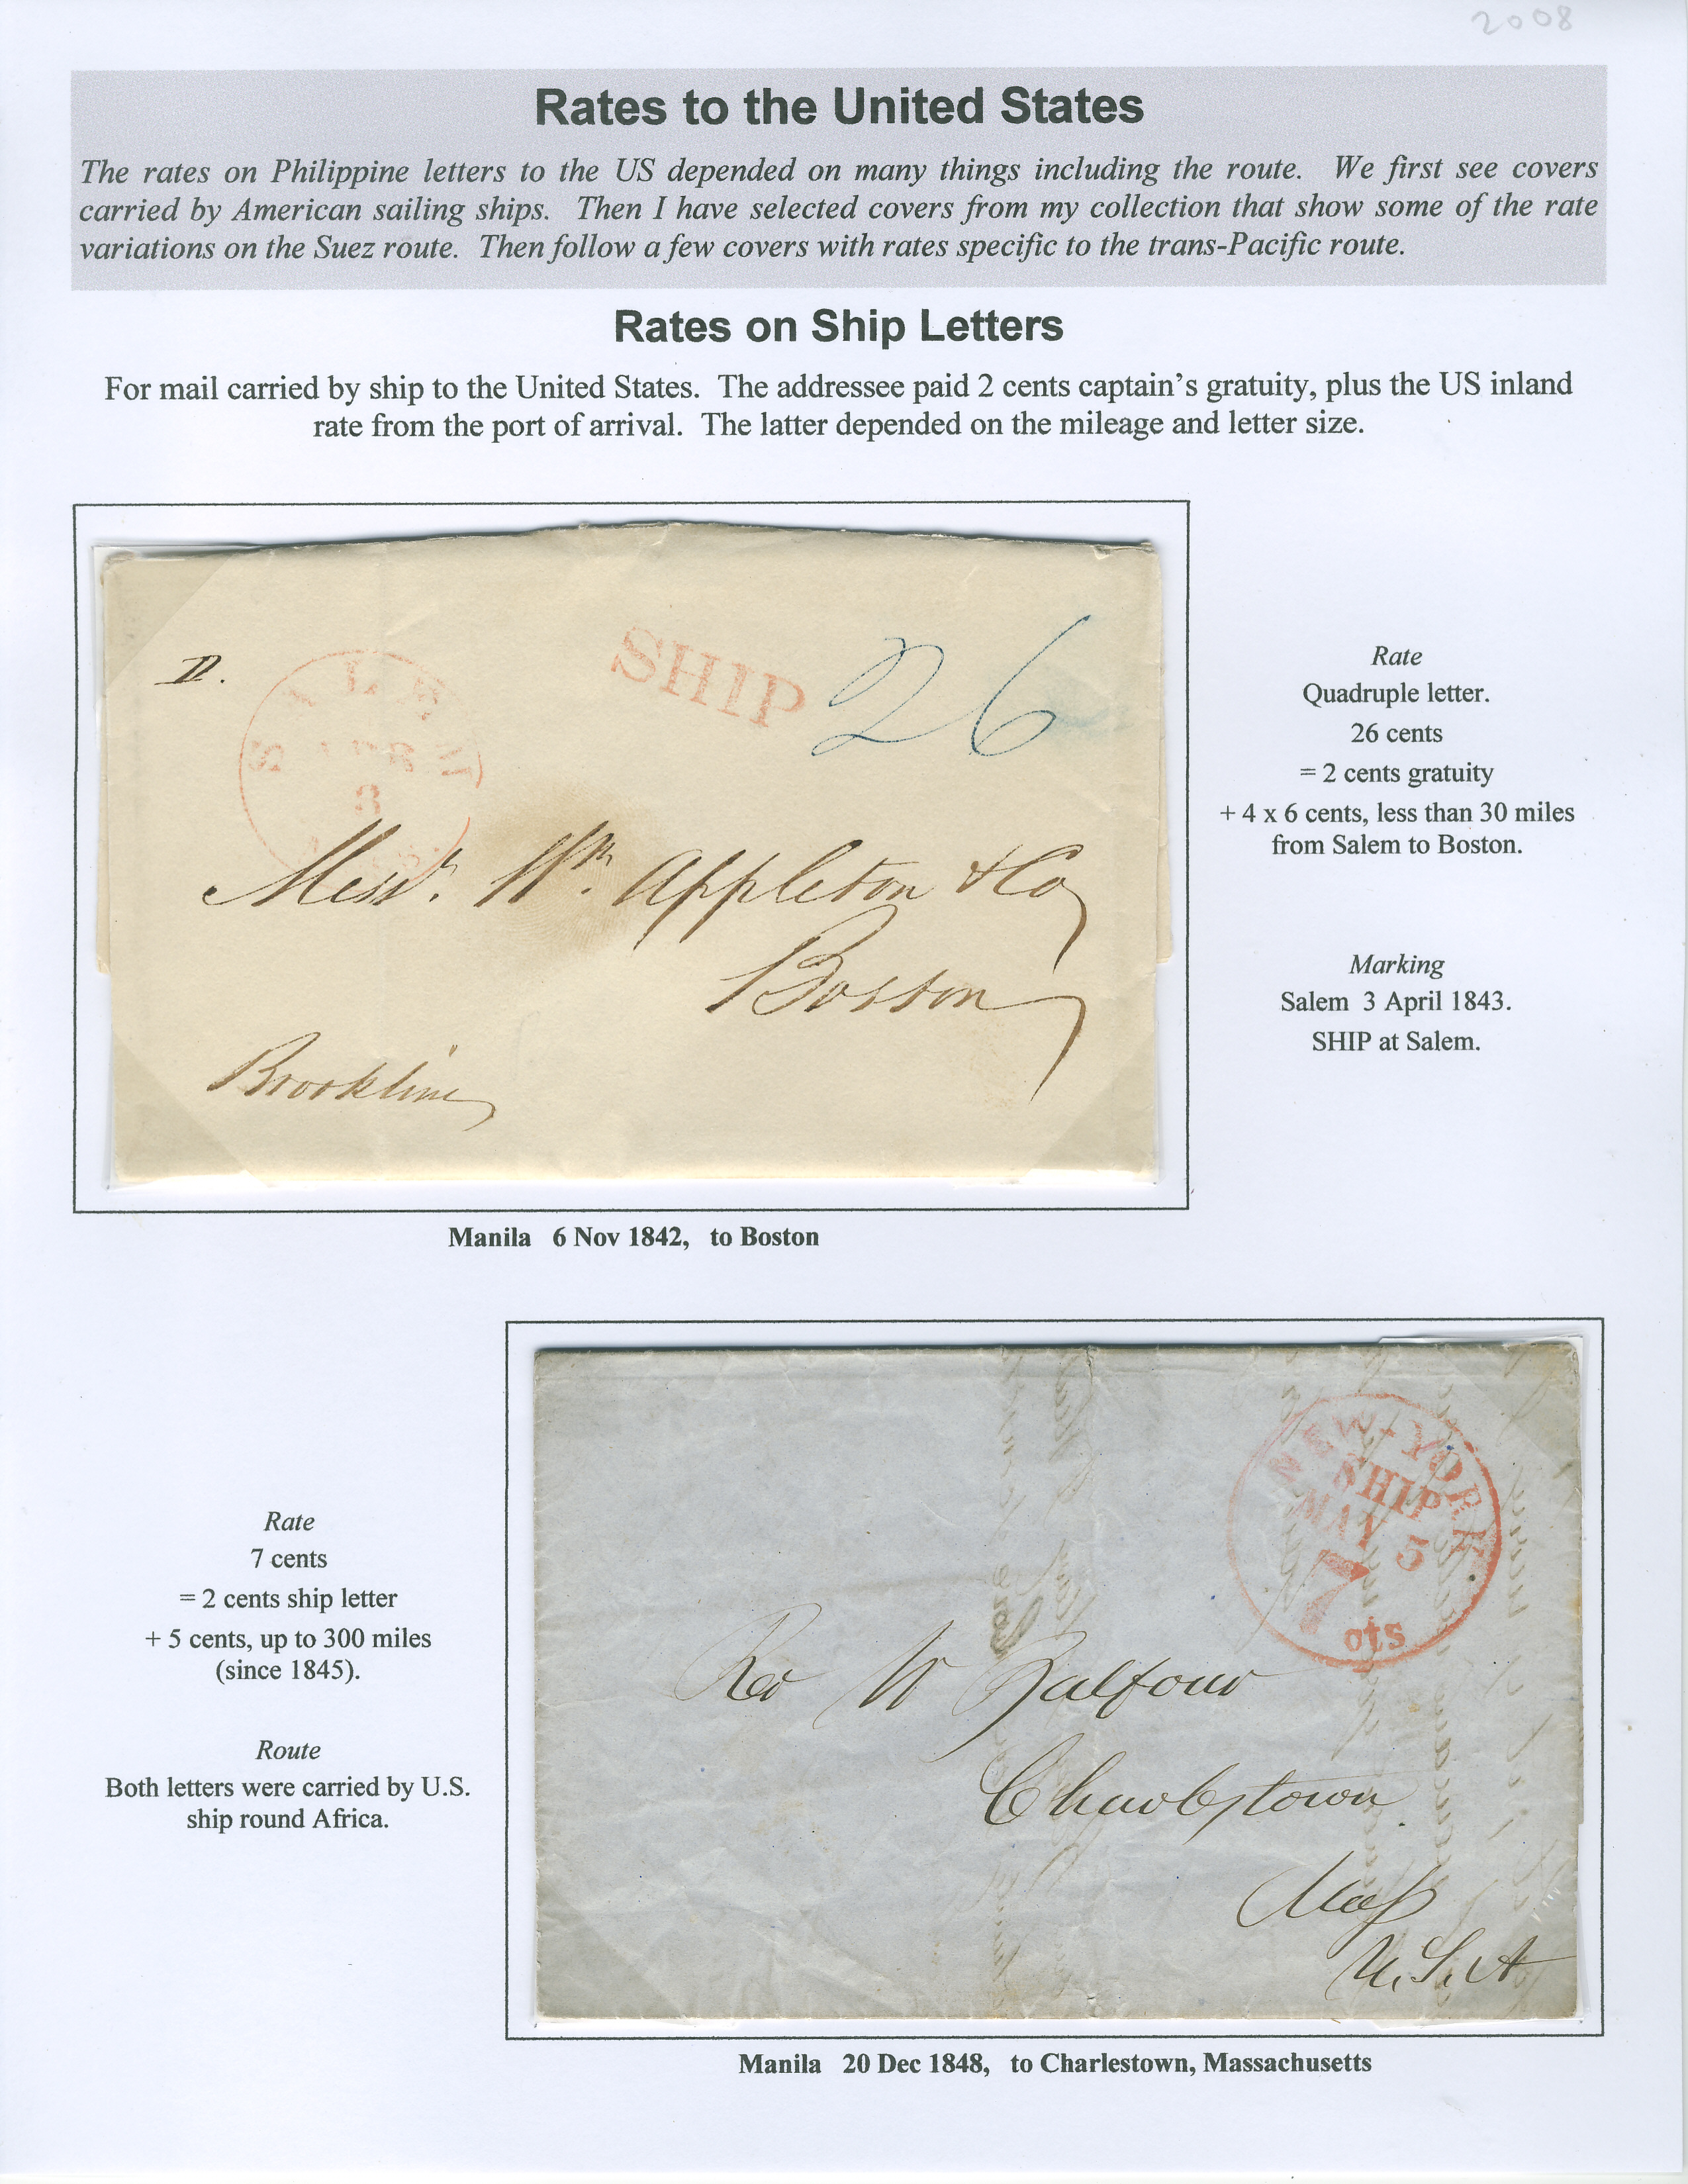 2008
Rates to the United States
The rates on Philippine letters to the US depended on many things including the route. We first see covers
carried by American sailing ships. Then I have selected covers from my collection that show some of the rate
variations on the Suez route. Then follow a few covers with rates specific to the trans-Pacific route.
Rates on Ship Letters
For mail carried by ship to the United States. The addressee paid 2 cents captain's gratuity, plus the US inland
rate from the port of arrival. The latter depended on the mileage and letter size.
II.
SALEM
APR
3
SHIP
26
Messrs. Wm. Appleton & Co
Boston
Brookline
Rate
Quadruple letter.
26 cents
= 2 cents gratuity
+ 4 x 6 cents, less than 30 miles
from Salem to Boston.
Marking
Salem 3 April 1843.
SHIP at Salem.
Manila 6 Nov 1842, to Boston
Rate
7 cents
= 2 cents ship letter
+ 5 cents, up to 300 miles
(since 1845).
Route
Both letters were carried by U.S.
ship round Africa.
NEW-YORK
SHIP
MAY 5
7
cts
Rev W Balfour
Charlestown
Mass
U.S.A
Manila 20 Dec 1848, to Charlestown, Massachusetts